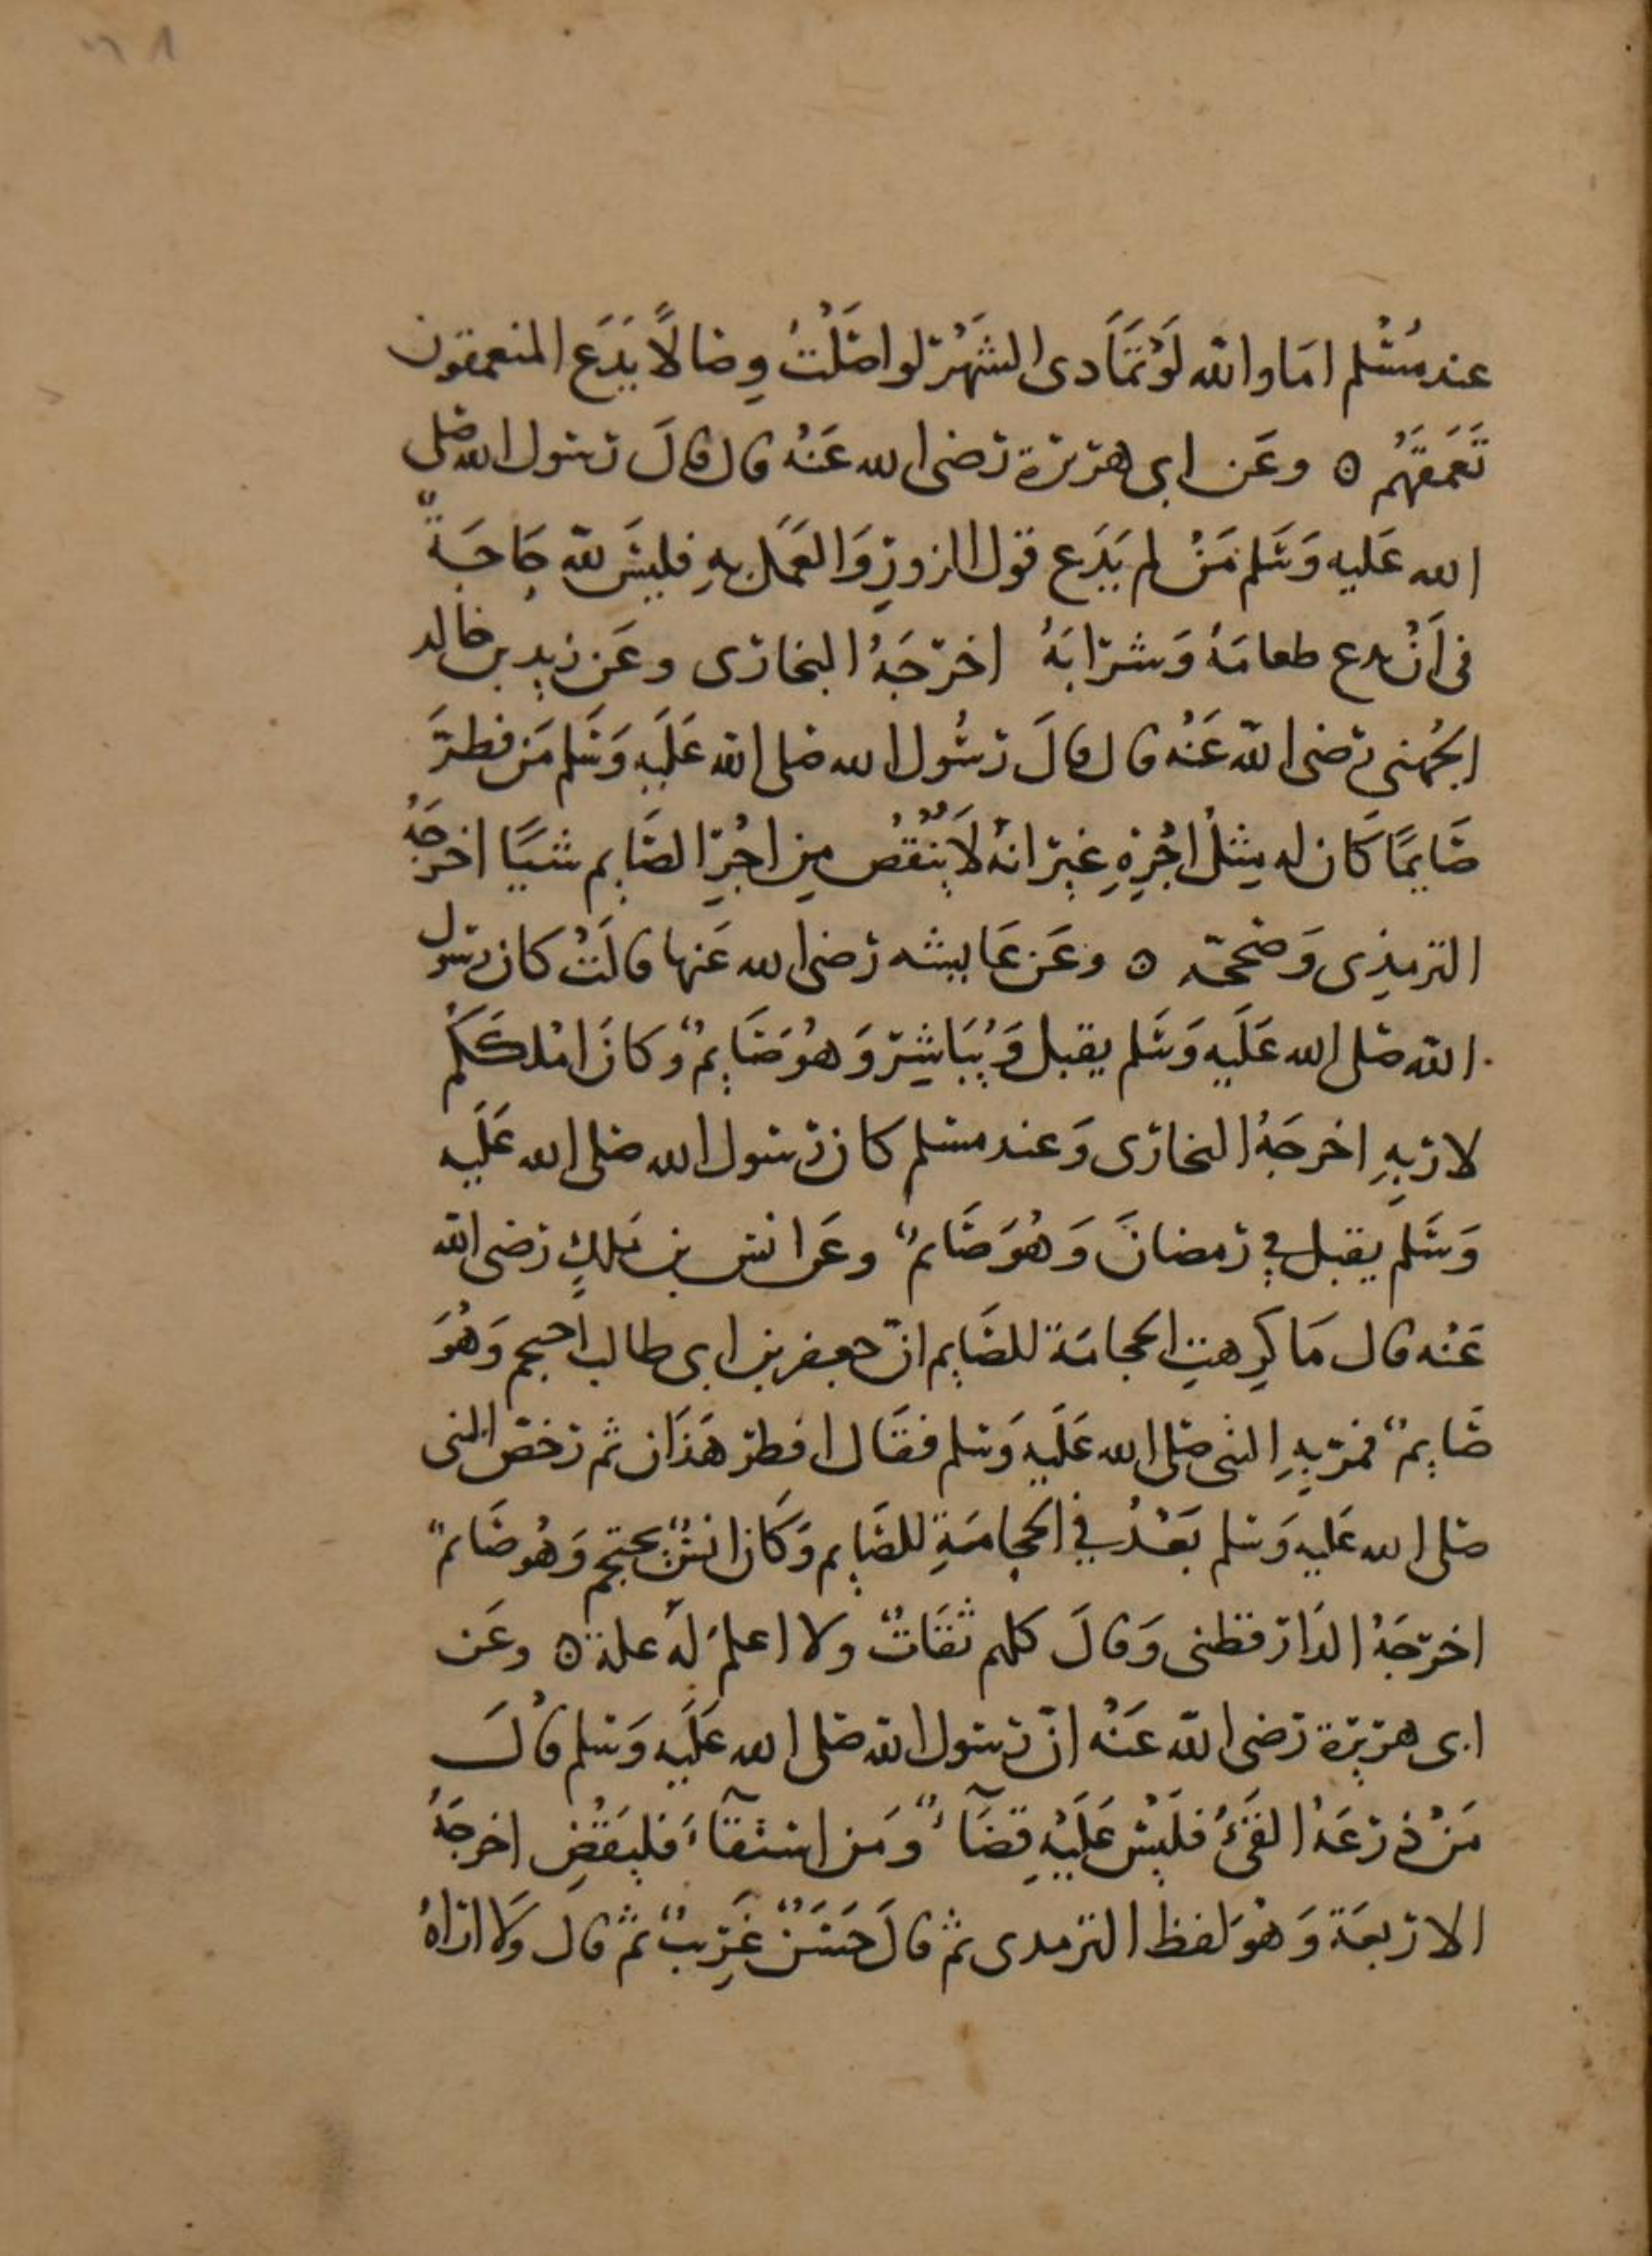 عند مُسْلم امَا والله لَوْ تَمَادى الشَهْر لواصَلْتُ وِصَالًا يَدَع المتعمقون
تَعَمقَهُم ه وعَن ابى هريرة رَضى الله عَنْهُ قال قالَ رسول الله صَلى
الله عَليه وَسَلم مَنْ لم يَدَع قول الزورِ وَالعَمَل بِهِ فليسَ لله حَاجَةٌ
فى اَنْ يدع طعامَهُ وَشرَابَهُ اخرَجَهُ البخارى وعَن زيد بن خالد
الجُهنى رَضى الله عَنْه قال قالَ رسُول الله صَلى الله عَلَيهِ وَسَلم مَن فطرَ
صَايمًا كَان له مِثلُ اجْرِهِ غير انهُ لَا يَنْقُصُ مِن اجْرِ الصَايم شيَا اخرجَهُ
الترمِذِى وَصَححَه ه وعَن عَايشه رَضى الله عَنها قالَتْ كان رسول
الله صَلى الله عَلَيه وَسَلم يقبل وَيُبَاشِر وَهُوَ صَايمٌ وكانَ امْلكَكُم
لارَبِهِ اخرجَهُ البخارى وَعند مسلم كان رسول الله صَلى الله عَلَيه
وَسَلَم يقبل فِى رَمضانَ وَهُوَ صَايمٌ وعَن انس بن مَلكٍ رَضى الله
عَنْه قال مَا كرِهتِ الحجامَة للصَايم انّ جعفر بن ابى طالب احتجم وَهُوَ
صَايمٌ فمرَ بِهِ النبى صَلى الله عَلَيه وَسلم فقَال افطر هَذَان ثم رَخصَ النبى
صَلى الله عَليه وَسلم بَعْدُ فِي الحجامَةِ للصَايم وَكَان انسٌ يحتجم وَهُو صَايمٌ
اخرَجَهُ الدَارقطنى وَقالَ كلهم ثقَاتٌ ولا اعلمُ لَه علة ه وعَن
ابى هريرة رَضى الله عَنْه انّ رسول الله صَلى الله عَلَيه وَسلم قالَ
مَنْ ذرَعَهُ القَىُ فلَيْسَ عَلَيْهِ قضَآءٌ وَمَن استقآءَ فليَقْضِ اخرجَهُ
الاربعَة وَهُوَ لفظ الترمدى ثم قالَ حَسَنٌ غَرِيبٌ ثم قال وَلَا ارَاهُ